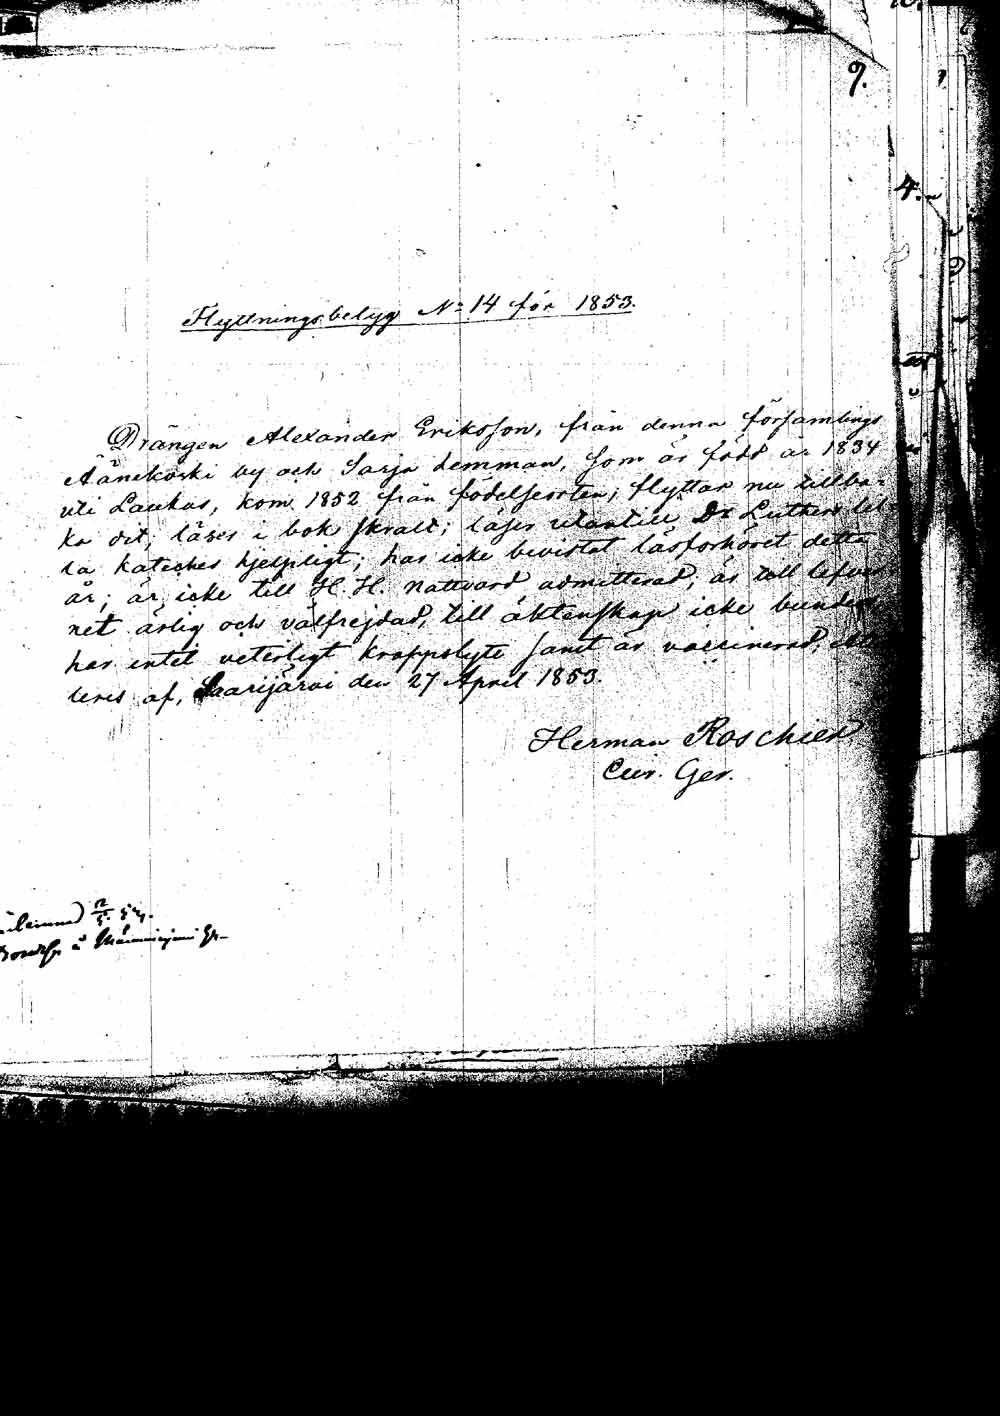 9.
4.
Flyttningsbetyg No 14 för 1853.
Drängen Alexander Eriksson, från denna församlings
Äänekoski by och Sarja hemman, som är född år 1834
uti Laukas, kom 1852 från födelseorten; flyttar nu tillba-
ka dit; läser i bok skralt; läser utantill Dr Luthers lil-
la kateches hjelpligt; har icke bevistat läsförhöret detta
år; är icke till H. H. Nattvard admitterad; är till lefver
net ärlig och välfrejdad, till äktenskap icke bunden
har intet veterligt kroppslyte samt är vaccinerad;
teres af, Saarijärvi den 27 April 1853.
Herman Roschier
Cur. Ger.